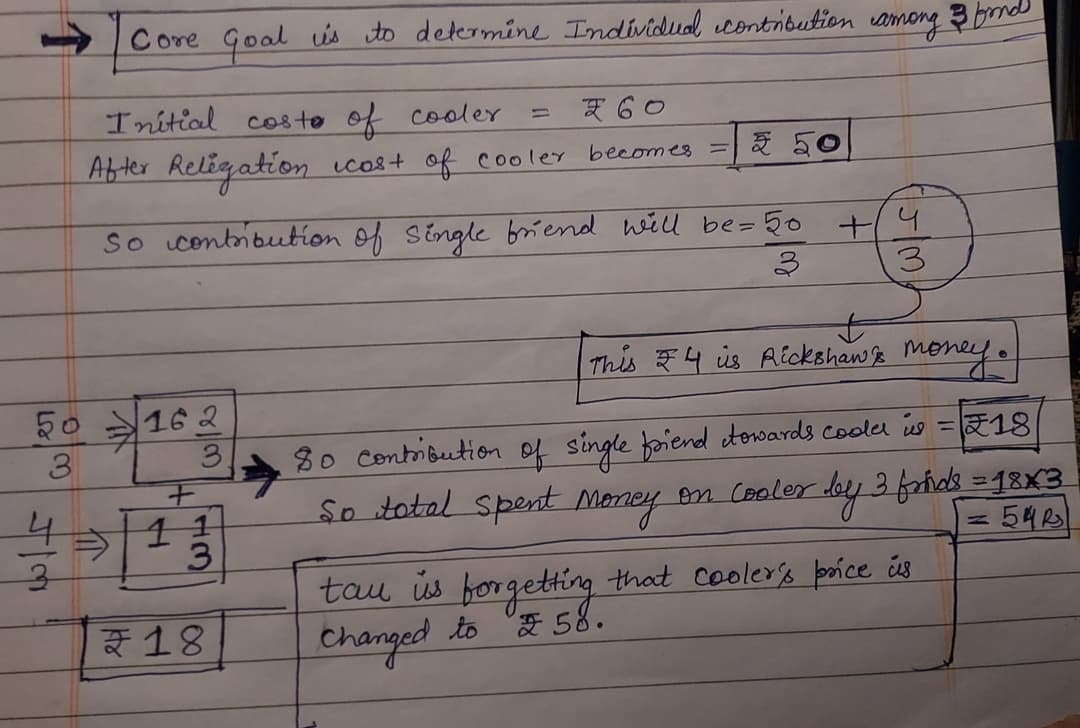 → Core Goal is to determine Individual contribution among 3 frnds
Initial costo of cooler = ₹ 60
After Religation cost of cooler becomes = ₹ 50
So contribution of single friend will be = 50/3 + 4/3
This ₹ 4 is Rickshaw's money.
50/3 ⇒ 16 2/3
+
4/3 ⇒ 1 1/3
₹ 18
→ So contribution of single friend towards cooler is = ₹18
So total spent money on cooler by 3 frnds = 18x3
= 54 Rs
tau is forgetting that cooler's price is
changed to ₹ 50.